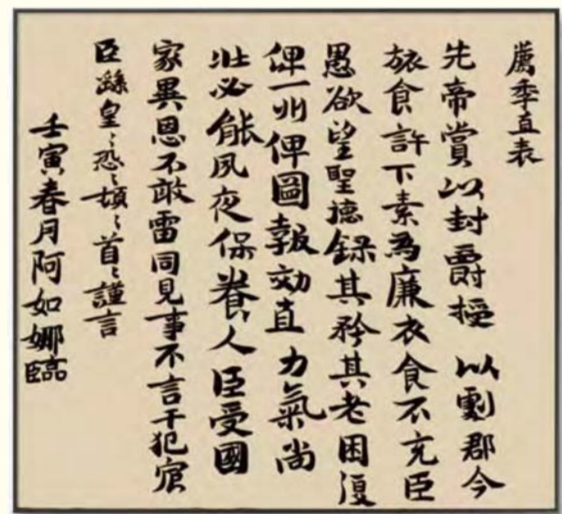 薦季直表
先帝賞以封爵授以劇郡今
旅食許下素為廉衣食不充臣
愚欲望聖德錄其矜其老困復
俾一州俾圖報効直力氣尚
壯必能夙夜保養人臣受國
家異恩不敢雷同見事不言干犯宸
臣繇皇〻恐〻頓〻首〻謹言
壬寅春月阿如娜臨